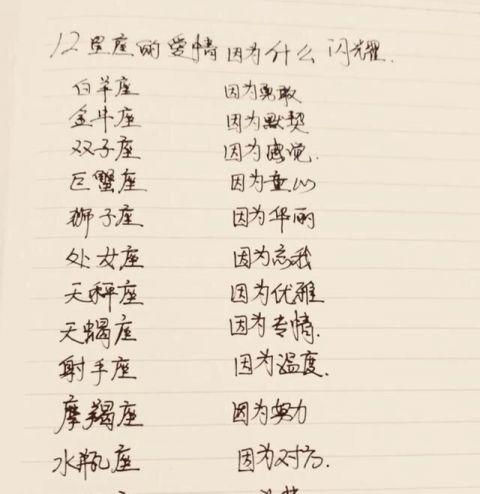 12星座的爱情因为什么闪耀.
白羊座 因为勇敢
金牛座 因为默契
双子座 因为感觉.
巨蟹座 因为童心
狮子座 因为华丽
处女座 因为忘我
天秤座 因为优雅
天蝎座 因为专情.
射手座 因为温度.
摩羯座 因为努力
水瓶座 因为对方.